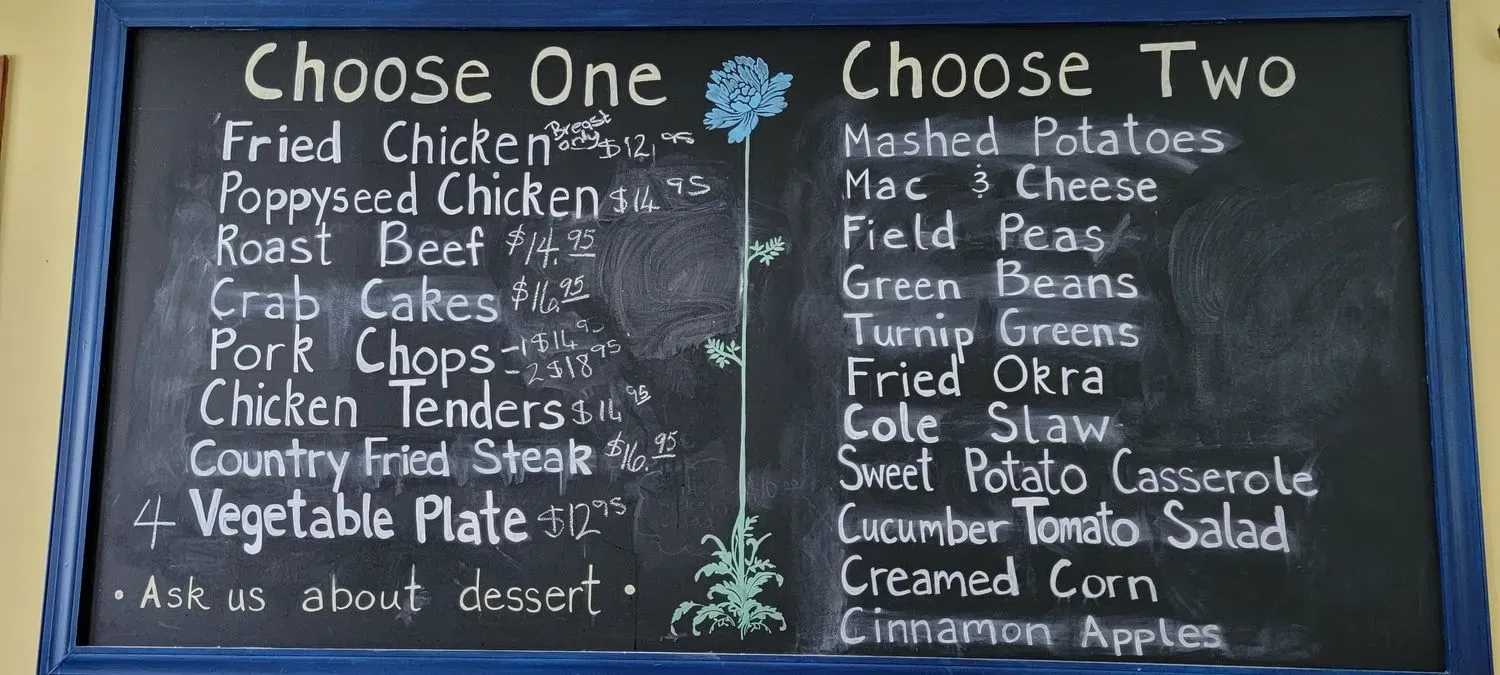 Choose One
Fried Chicken Breast only $12.95
Poppyseed Chicken $14.95
Roast Beef $14.95
Crab Cakes $16.95
Pork Chops -1 $14.95
-2 $18.95
Chicken Tenders $14.95
Country Fried Steak $16.95
4 Vegetable Plate $12.95
• Ask us about dessert •
Choose Two
Mashed Potatoes
Mac & Cheese
Field Peas
Green Beans
Turnip Greens
Fried Okra
Cole Slaw
Sweet Potato Casserole
Cucumber Tomato Salad
Creamed Corn
Cinnamon Apples